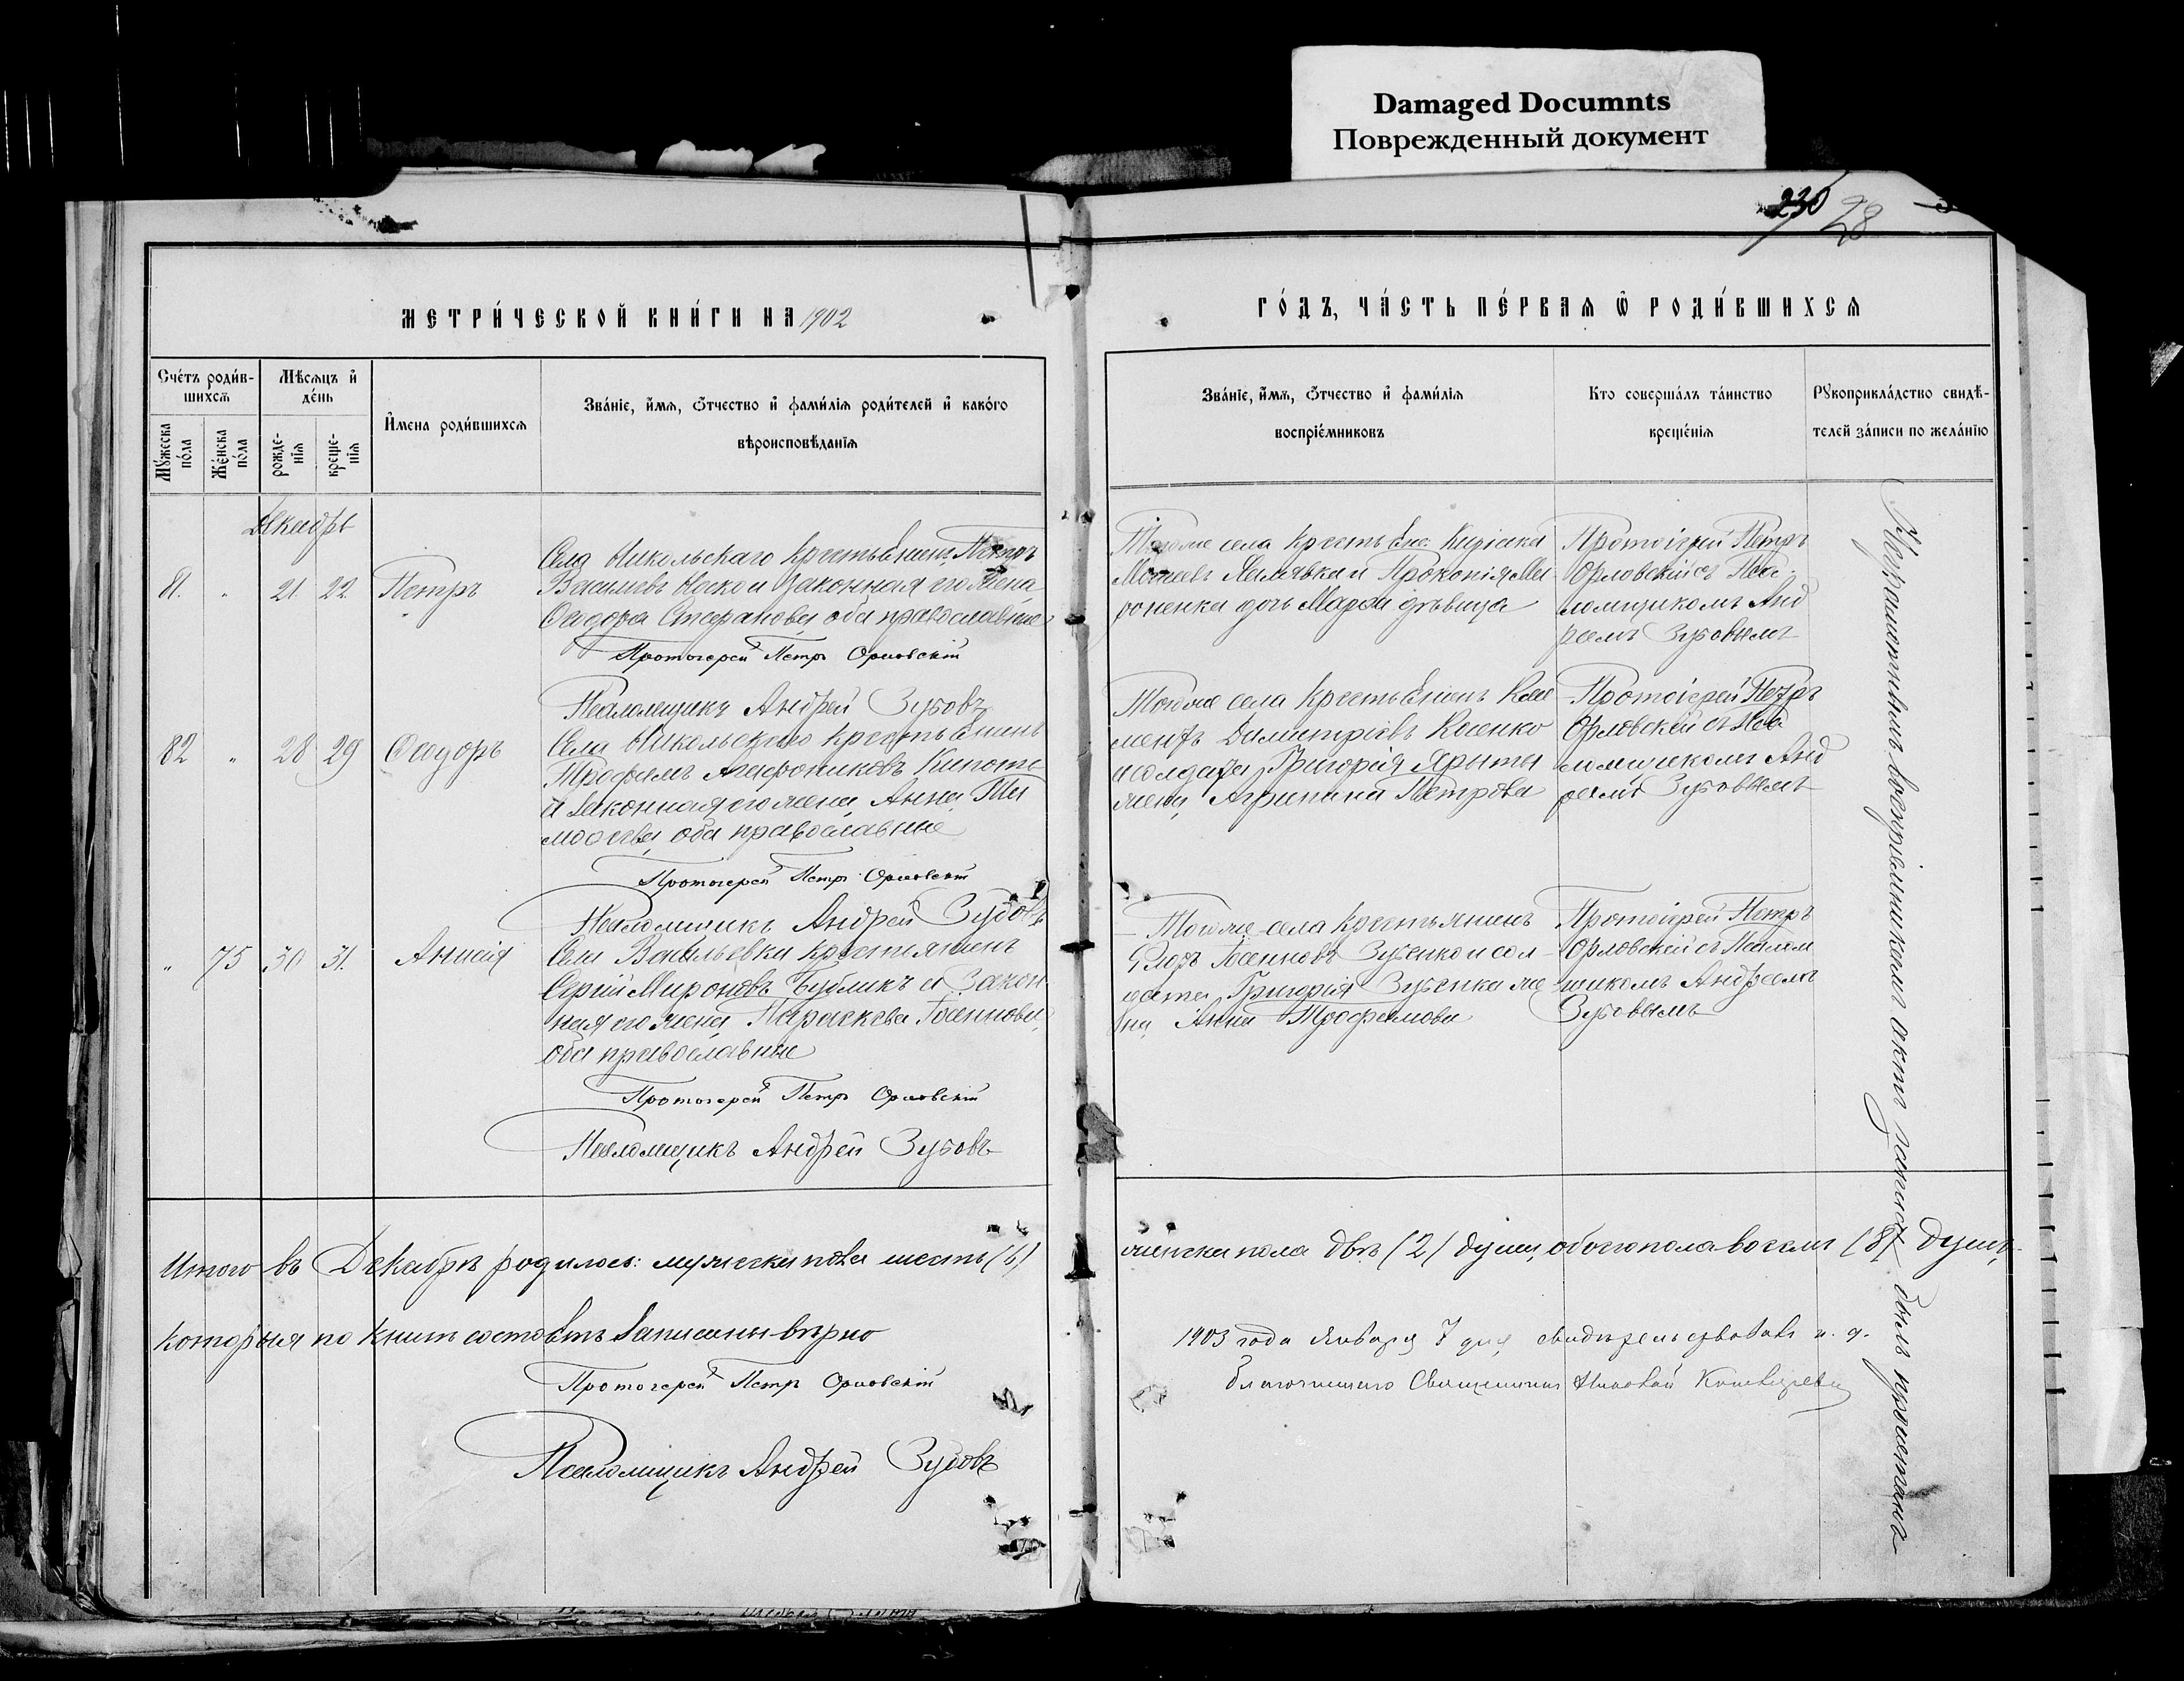 Damaged Documnts
Поврежденный документ
230
28
МЕТРИ́ЧЕСКОЙ КНИ́ГИ НА 1902
ГО́ДЪ, ЧА́СТЬ ПЕ́РВАѦ Ѡ҆ РОДИ́ВШИХСѦ
Сче́тъ роди́в-
шихсѧ
Мꙋ́жеска по́ла
Же́нска по́ла
Мѣ́сѧцъ и҆
де́нь
рожде́-
нїѧ
креще́-
нїѧ
И҆мена роди́вшихсѧ
Зва́нїе, и҆́мѧ, ѻ҆́тчество и҆ фами́лїѧ роди́телей и҆ како́го
вѣроисповѣ́данїѧ
Зва́нїе, и҆́мѧ, ѻ҆́тчество и҆ фами́лїѧ
воспрїе́мниковъ
Кто соверша́лъ та́инство
креще́нїѧ
Рꙋкоприкла́дство свидѣ́-
телей за́писи по жела́нїю
Декабрь
81. " 21. 22. Петръ
Села Никольскаго крестьянинъ Петръ
Васильевъ Носко и законная его жена
Ѳеодора Стефанова, оба православные
Протоіерей Петръ Орловскій
Псаломщикъ Андрей Зубовъ
Тогоже села крестьян.
и Прокопія Ми
роненка дочь Марѳа дѣвица
Протоіерей Петръ
Орловскій съ Пса-
ломщикомъ Анд
реемъ Зубовымъ
82 " 28 29 Ѳеодоръ
Села Никольскаго крестьянинъ
Трофимъ
и законная его жена Анна Ти
моѳеева, оба православные
Протоіерей Петръ Орловскій
Псаломщикъ Андрей Зубовъ
Тогоже села крестьянинъ Кли
ментъ Димитріевъ Косенко
и солдата Григорія Ярыты
жена Агрипина Петрова
Протоіерей Петръ
Орловскій съ Пса
ломщикомъ Анд
реемъ Зубовымъ
" 75 30 31. Анисія
Села Васильевки крестьянинъ
Сергій Мироновъ Бубликъ и Закон
ная его жена Параскева
оба православные
Протоіерей Петръ Орловскій
Псаломщикъ Андрей Зубовъ
Тогоже села крестьянинъ
Зубенко и сол
дата Григорія Зубенка же
на Анна Трофимова
Протоіерей Петръ
Орловскій съ Псалом
щикомъ Андреемъ
Зубовымъ
Неграмотнымъ воспріемникамъ актъ записи былъ прочитанъ
Итого въ Декабрѣ родилось: мужеска пола шесть (6)
женска пола двѣ (2) души, обоего пола восемь (8) душъ,
которыя по книгѣ записаны вѣрно
Протоіерей Петръ Орловскій
Псаломщикъ Андрей Зубовъ
1903 года Января 7 дня свидѣтельствовалъ и. д.
благочиннаго Священникъ Николай